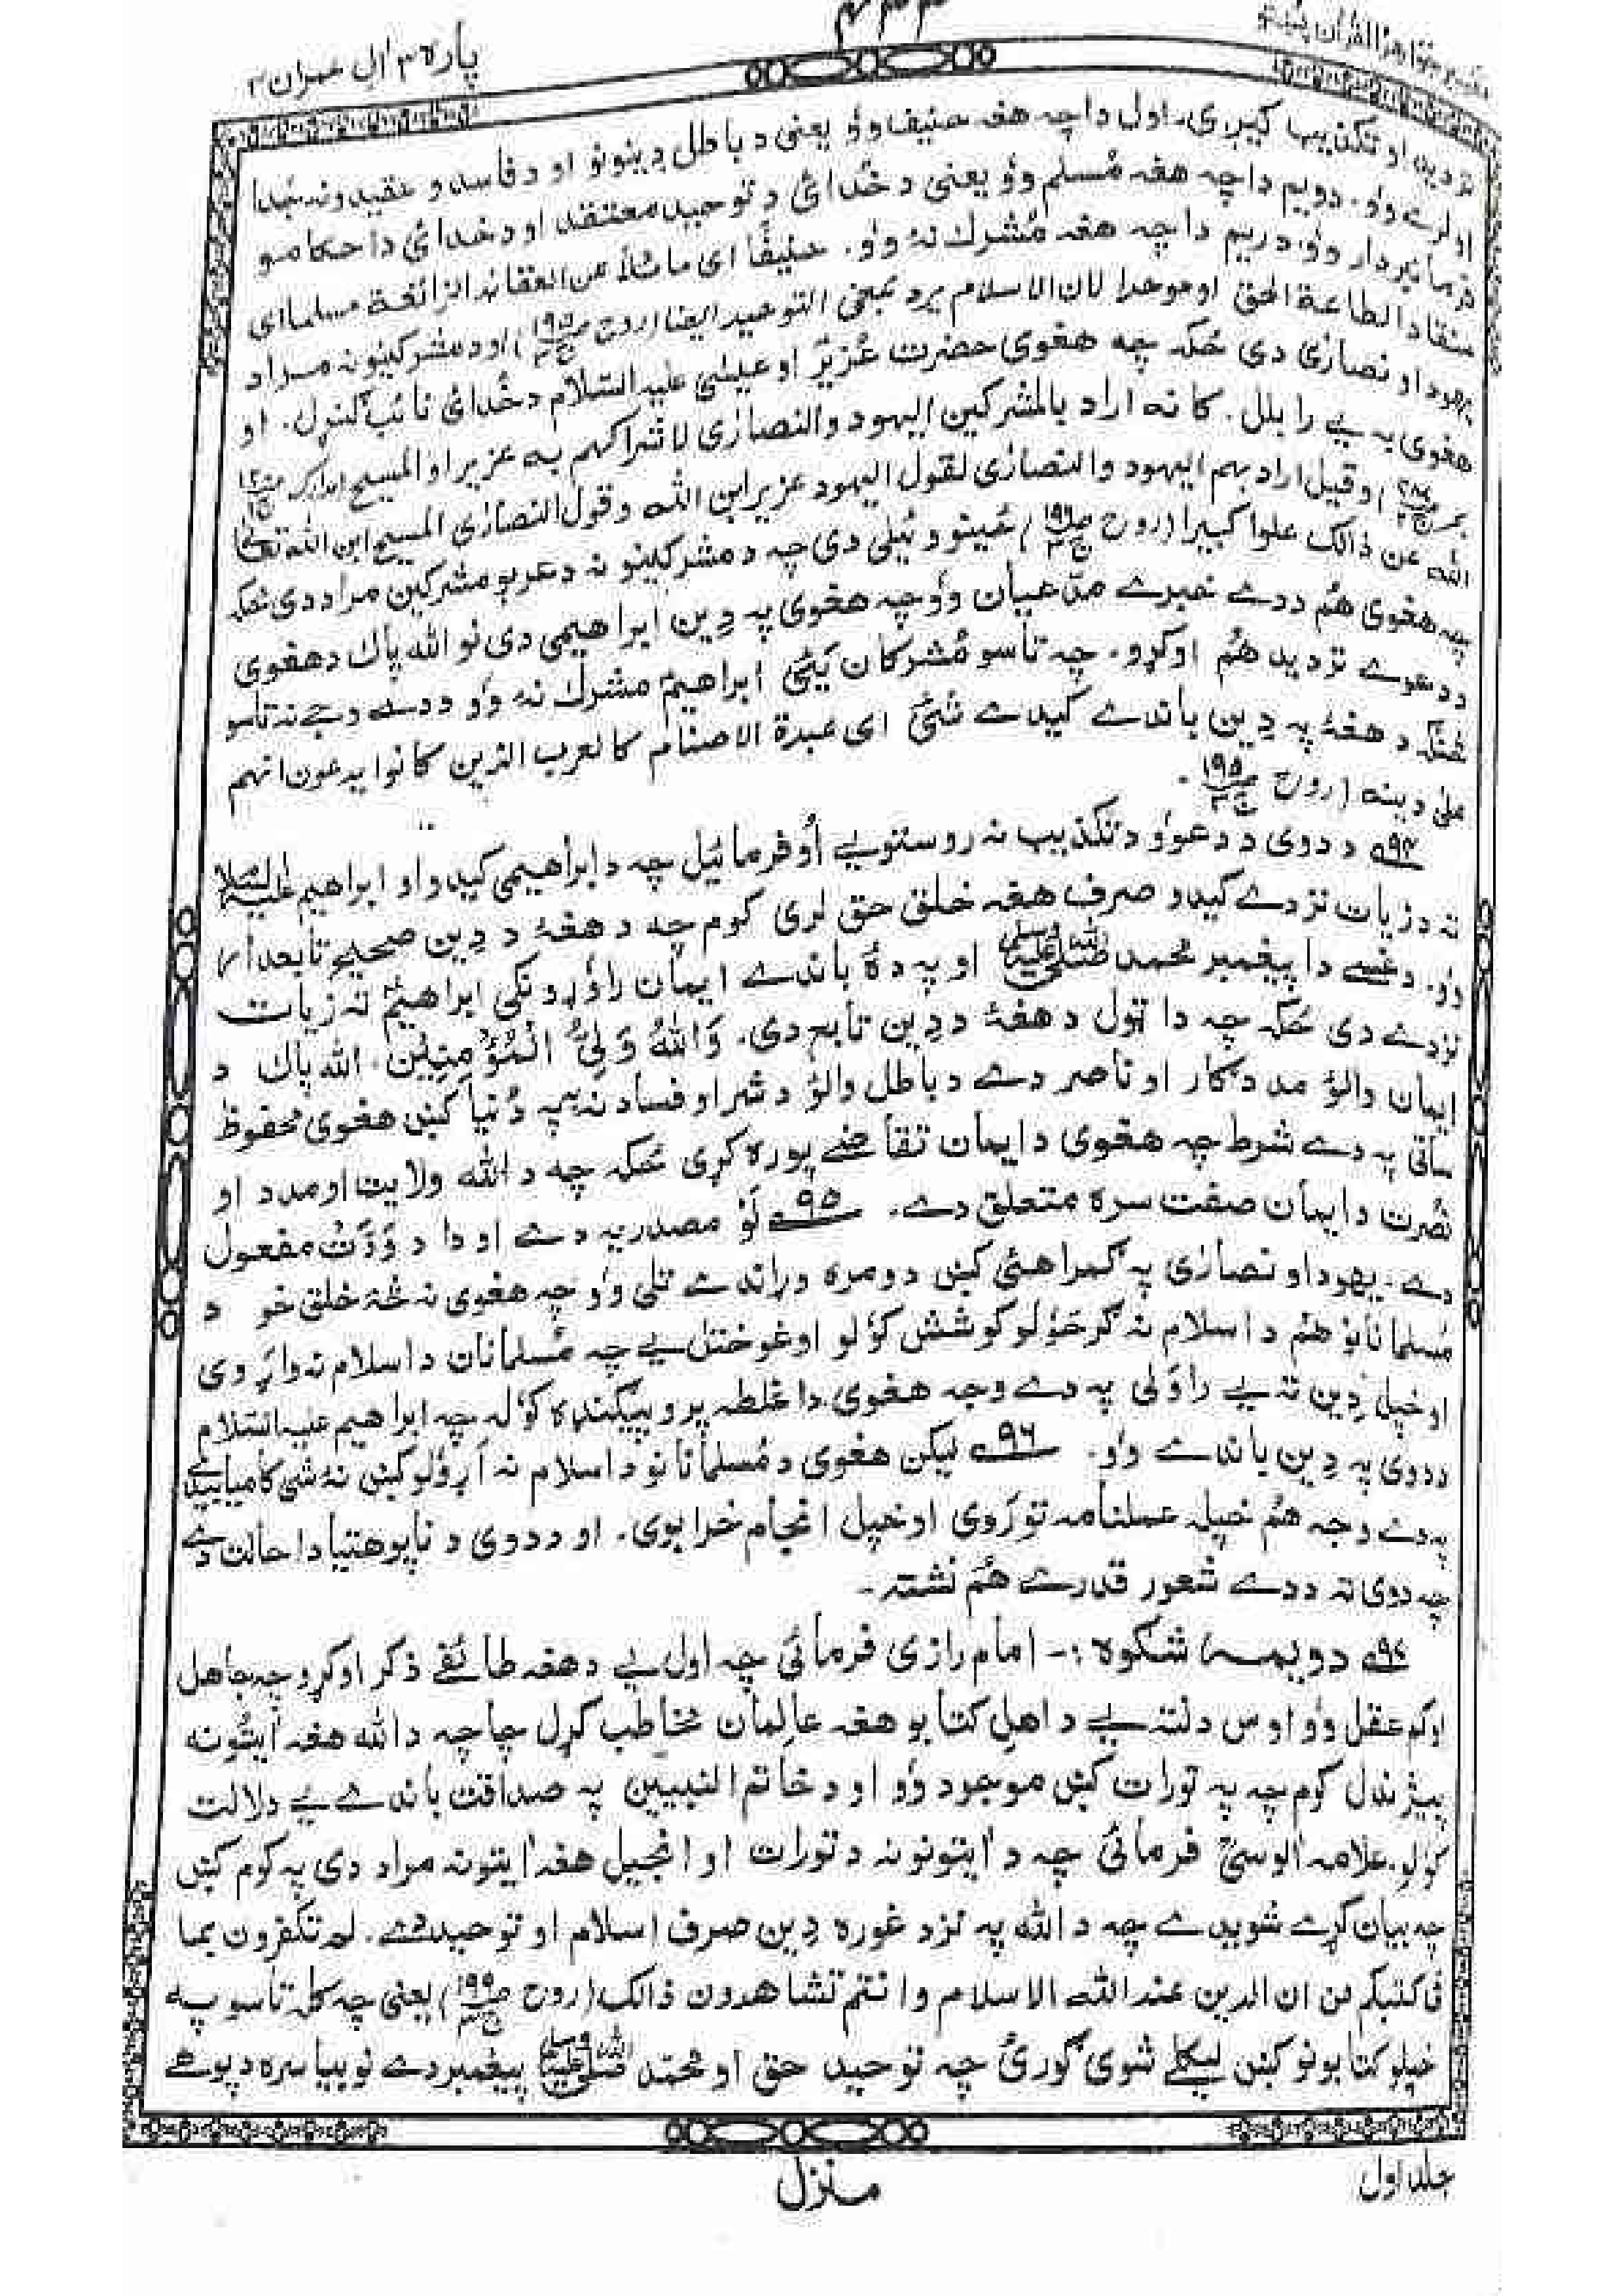 پاره ۳ اٰلِ عمران ۳
تردید او تکذیب کیږی۔ اول دا چه هغه حنیف وؤ یعنی د باطل دِینونو او د فاسدو عقیدو نه جُدا
اولرے وؤ۔ دویم دا چه هغه مُسلم وؤ یعنی د خُدائ د توحید معتقد او د خدائ د احکامو
فرمانبردار وؤ، دریم دا چه هغه مُشرك نهٔ وؤ۔ حنیفًا ای مائلًا عن العقائد الزائغة مسلما ای
منقادا لطاعة الحق او موحدا لان الاسلام یرد بمعنی التوحید ایضا (روح ص۱۹۵ ج۳) او د مشرکینو نه مراد
یهود او نصارٰی دی ځکه چه هغوی حضرت عُزیرؑ او عیسٰی علیه السّلام د خُدائ نائب گنړل۔ او
هغوی به یے رابلل۔ کانه اراد بالمشرکین الیهود والنصارٰی لاشراکهم به عزیر او المسیح (مدارک
بحر) وقیل اراد بهم الیهود والنصارٰی لقول الیهود عزیر ابن الله وقول النصارٰی المسیح ابن الله تعالٰی
الله عن ذالك علوا کبیرا (روح ص۱۹۶ ج۳) ځینو وئیلی دی چه د مشرکینو نه د عربو مشرکین مراد دی ځکه
چه هغوی هُم ددے خبرے مدّعیان وؤ چه هغوی په دِین ابراهیمی دی نو الله پاك د هغوی
د دعوے تردید هُم اوکړو۔ چه تاسو مُشرکان یٔی ابراهیمؑ مشرك نه وؤ د دے وجے نه تاسو
څنګه د هغهٔ په دِین باندے کیدے شیٔ ای عبدة الاصنام کالعرب الذین کانوا یدعون انهم
علی دینه (روح ص۱۹۵ ج۳)۔
۹۴ د دوی د دعوؤ د تکذیب نه روستو یے اُوفرمائیل چه د ابراهیمی کیدو او ابراهیم علیه السّلام
ته د زیات نزدے کیدو صرف هغه خلق حق لری کوم چه د هغهٔ د دِین صحیح تابعدار
وؤ۔ دغسے دا پیغمبر محمد صلی الله علیه وسلم او په دهٔ باندے ایمان راوړونکی ابراهیمؑ ته زیات
نزدے دی ځکه چه دا ټول د هغهٔ د دِین تابع دی۔ وَاللهُ وَلِیُّ الْمُؤْمِنِیْن۔ الله پاك د
ایمان والؤ مددګار او ناصر دے د باطل والؤ د شر او فساد نه یے په دُنیا کښ هغوی محفوظ
ساتی په دے شرط چه هغوی د ایمان تقاضے پوره کړی ځکه چه د الله ولایت او مدد او
نُصرت د ایمان صفت سره متعلق دے۔ ۹۵ لَوْ مصدریه دے او دا د وَدَّتْ مفعول
دے۔ یهود او نصارٰی په گمراهیٔ کښ دومره وړاندے تلی وؤ چه هغوی نه څهٔ خلق خو د
مُسلمانانو هُم د اسلام نه گرځولو کوشش کوٗلو او غوختل یے چه مُسلمانان د اسلام نه واړوی
او خپل دِین ته یے راوَلی په دے وجه هغوی دا غلطه پروپیګنډه کوٗله چه ابراهیم علیه السّلام
د دوی په دِین باندے وؤ۔ ۹۶ لیکن هغوی د مُسلمانانو د اسلام نه اَړوٗلو کښ نهٔ شی کامیابیدے
په دے وجه هُم خپله عملنامه توروی او خپل انجام خرابوی۔ او د دوی د ناپوهتیا دا حالت دے
چه دوی ته د دے شعور قدرے هُم نشته۔
دویمه شکوه :- امام رازی فرمائی چه اول یے د هغه طائفے ذکر اوکړو چه جاهل
او کم عقل وؤ او س دلته یے د اهلِ کتابو هغه عالِمان مخاطب کړل چا چه د الله هغه اٰیتُونه
پیژندل کوم چه په تورات کښ موجود وؤ او د خاتم النبیین په صداقت باندے یے دلالت
کوٗلو۔ علامه اٰلوسیؒ فرمائیٔ چه د اٰیتونو نه د تورات او انجیل هغه اٰیتونه مراد دی په کوم کښ
چه بیان کړے شویدے چه د الله په نزد غوره دِین صرف اسلام او توحید دے۔ لم تکفرون بما
فی کتبکم من ان الدین عند الله الاسلام وانتم تشاهدون ذالك (روح ص۱۹۹ ج۳) یعنی چه کله تاسو په
خپلو کتابونو کښ لیکلے شوی گوریٔ چه توحید حق او مُحمّد صلی الله علیه وسلم پیغمبر دے نو بیا سره د پوهے
جلد اول
منزل